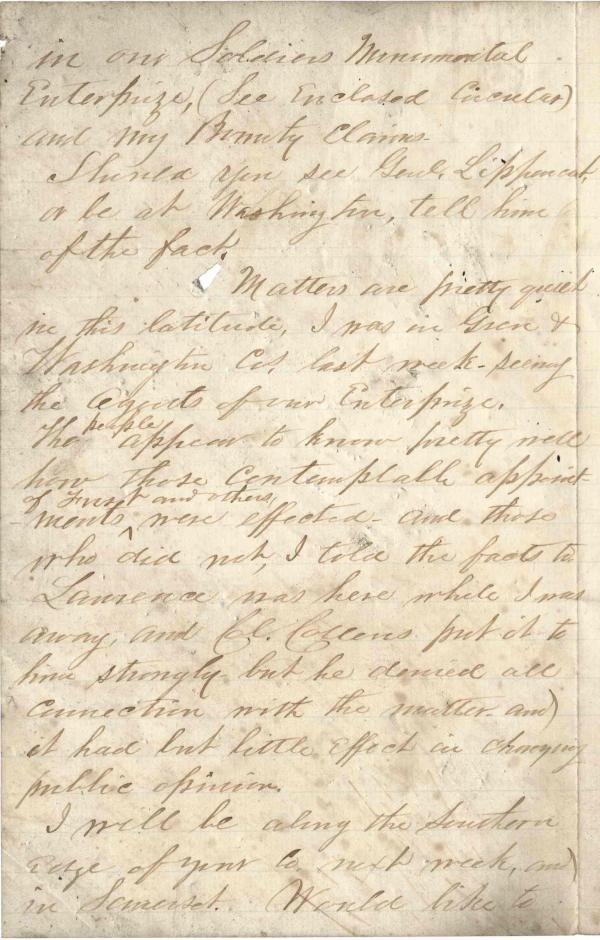 in our Soldiers Monumental
Enterprize, (See Enclosed Circular)
and my Bounty Claims.
Should you see Genl. Lippencott,
or be at Washington, tell him
of the fact.
Matters are pretty quiet
in this latitude, I was in Green &
Washington Cos, last week - seeing
the agents of our Enterprize.
The people appear to know pretty well
how those Contemptable appoint-
of and others,
-ments were effected - and those
who did not, I told the facts to
Lawrence was here while I was
away, and Col. Collins put it to
him strongly - but he denied all
Connection with the matter - and
it had but little Effect in changing
public opinion.
I will be along the Southern
Edge of your Co next week, and
in Somerset. Would like to